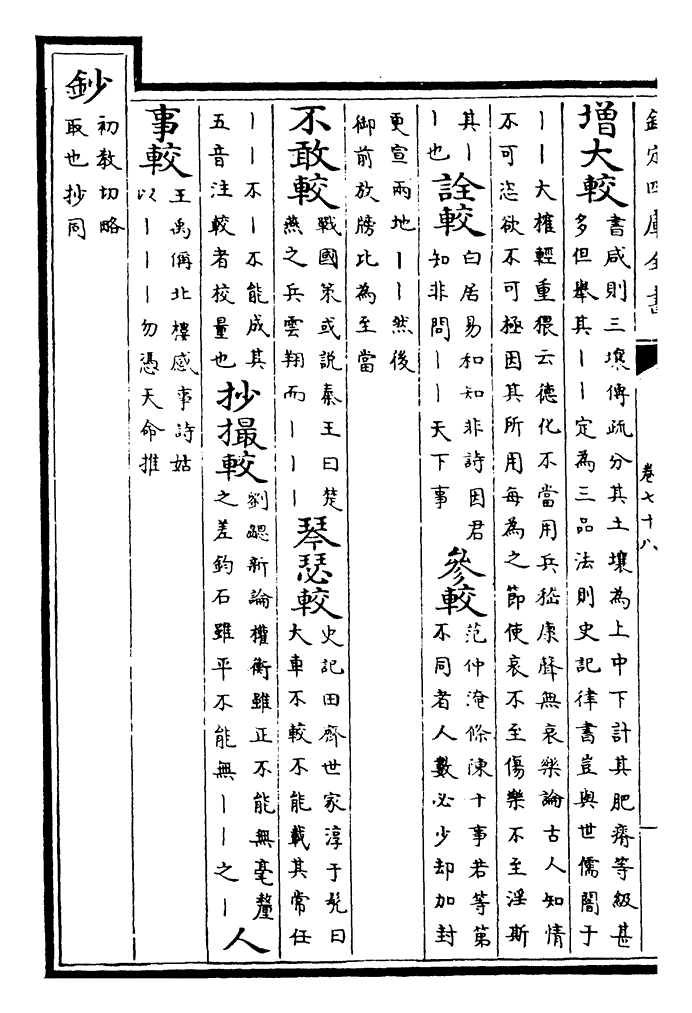 欽定四庫全書
卷七十八
增大較書咸則三壤傳疏分其土壤為上中下計其肥瘠等級甚
多但舉其丨丨定為三品法則史記律書豈與世儒闇于
丨丨大權輕重猥云德化不當用兵嵇康聲無哀樂論古人知情
不可恣欲不可極因其所用每為之節使哀不至傷樂不至淫斯
其丨
丨也詮較白居易和知非詩因君
知非問丨丨天下事參較范仲淹條陳十事君等第
不同者人數必少却加封
更宣兩地丨丨然後
御前放牓比為至當
不敢較戰國策或說秦王曰楚
燕之兵雲翔而丨丨丨琴瑟較史記田齊世家淳于髡曰
大車不較不能載其常任
丨丨不丨不能成其
五音注較者校量也抄撮較劉勰新論權衡雖正不能無毫釐
之差鈞石雖平不能無丨丨之丨人
事較王禹偁北樓感事詩姑
以丨丨丨勿憑天命推
鈔初教切略
取也抄同